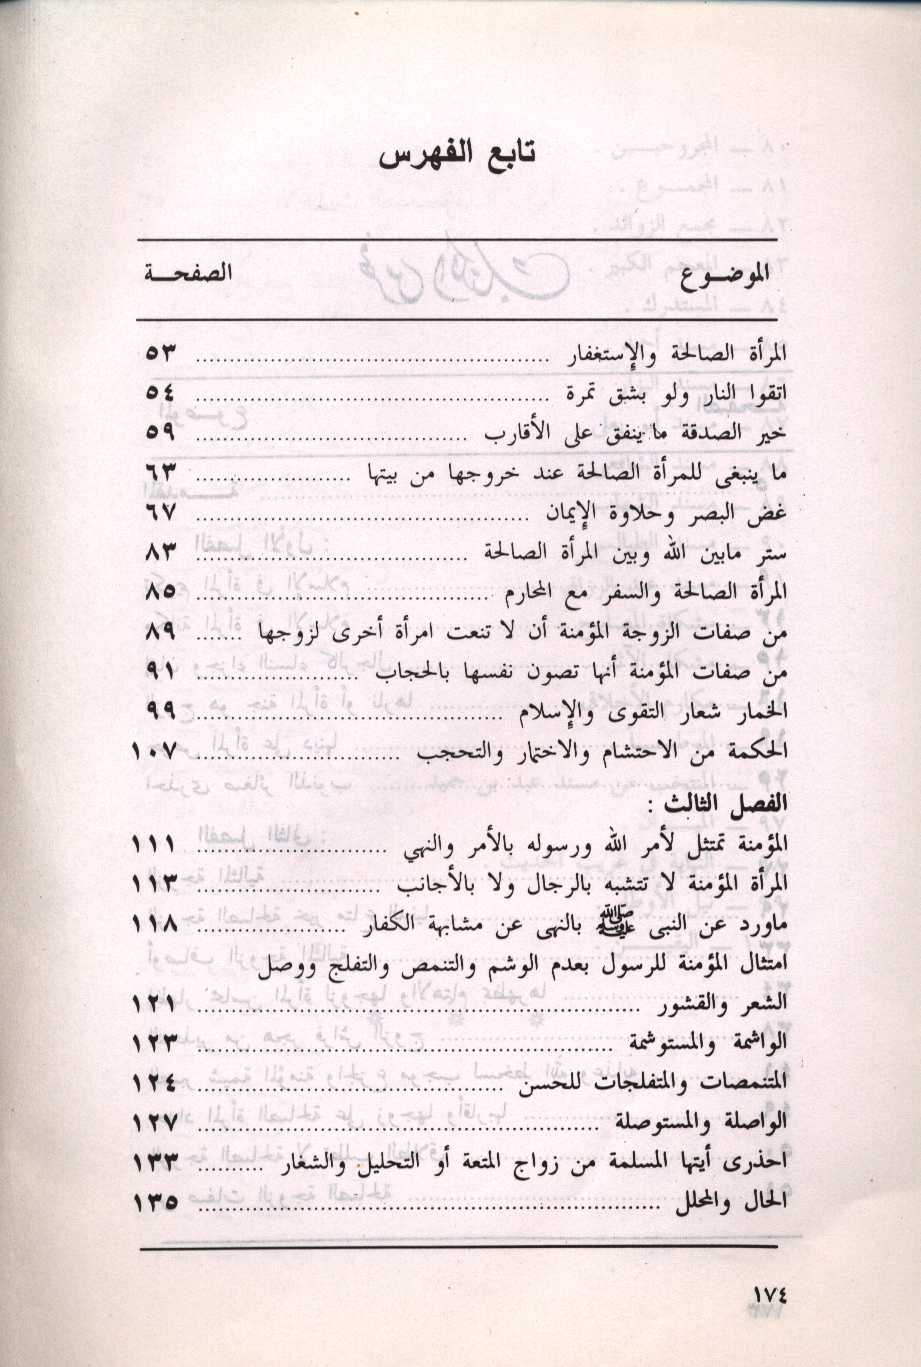 تابع الفهرس
الموضـوع الصفحـة
المرأة الصالحة والإستغفار ..... ٥٣
اتقوا النار ولو بشق تمرة ..... ٥٤
خير الصدقة ما ينفق على الأقارب ..... ٥٩
ما ينبغى للمرأة الصالحة عند خروجها من بيتها ..... ٦٣
غض البصر وحلاوة الإيمان ..... ٦٧
ستر مابين الله وبين المرأة الصالحة ..... ٨٣
المرأة الصالحة والسفر مع المحارم ..... ٨٥
من صفات الزوجة المؤمنة أن لا تنعت امرأة أخرى لزوجها ..... ٨٩
من صفات المؤمنة أنها تصون نفسها بالحجاب ..... ٩١
الخمار شعار التقوى والإسلام ..... ٩٩
الحكمة من الاحتشام والاختمار والتحجب ..... ١٠٧
الفصل الثالث :
المؤمنة تمتثل لأمر الله ورسوله بالأمر والنهي ..... ١١١
المرأة المؤمنة لا تتشبه بالرجال ولا بالأجانب ..... ١١٣
ماورد عن النبى ﷺ بالنهى عن مشابهة الكفار ..... ١١٨
امتثال المؤمنة للرسول بعدم الوشم والتنمص والتفلج ووصل
الشعر والقشور ..... ١٢١
الواشمة والمستوشمة ..... ١٢٣
المتنمصات والمتفلجات للحسن ..... ١٢٤
الواصلة والمستوصلة ..... ١٢٧
احذرى أيتها المسلمة من زواج المتعة أو التحليل والشغار ..... ١٣٣
الحال والمحلل ..... ١٣٥
١٧٤